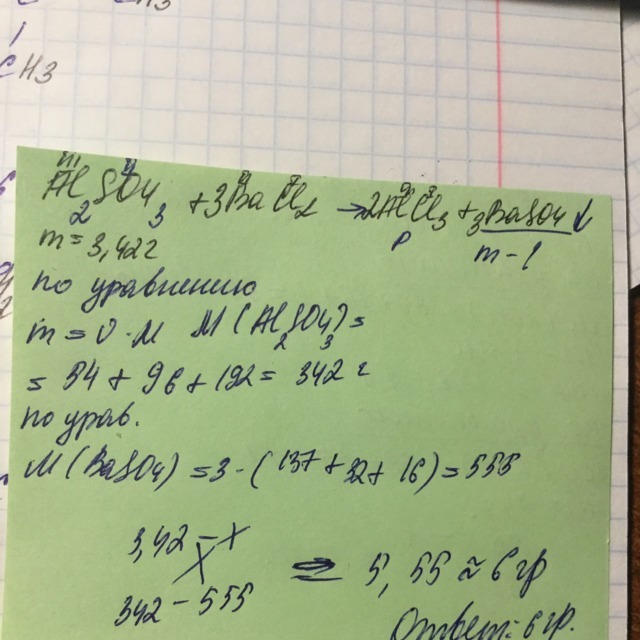 CH3
CH3
Al2SO43 + 3BaCl2 → 2AlCl3 + 3BaSO4↓
m = 3,42г р m - ?
по уравнению
m = υ·M M(Al2SO4)3 =
= 54 + 96 + 192 = 342 г
по урав.
M(BaSO4) = 3 · (137 + 32 + 16) = 555
3,42 – x
342 – 555
= 5,55 ≈ 6 гр
Ответ: 6 гр.